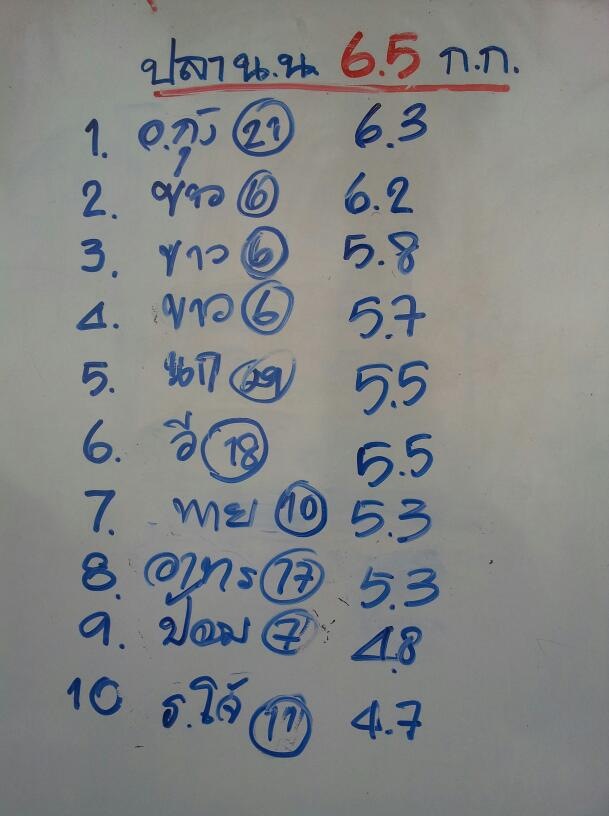 ปลา น.น. 6.5 ก.ก.
1. อ.กุ้ง 21 6.3
2. ขาว 6 6.2
3. ขาว 6 5.8
4. ขาว 6 5.7
5. นก 29 5.5
6. วี 18 5.5
7. ทาย 10 5.3
8. อาทร 17 5.3
9. ป้อม 7 4.8
10 ร.โจ้ 11 4.7